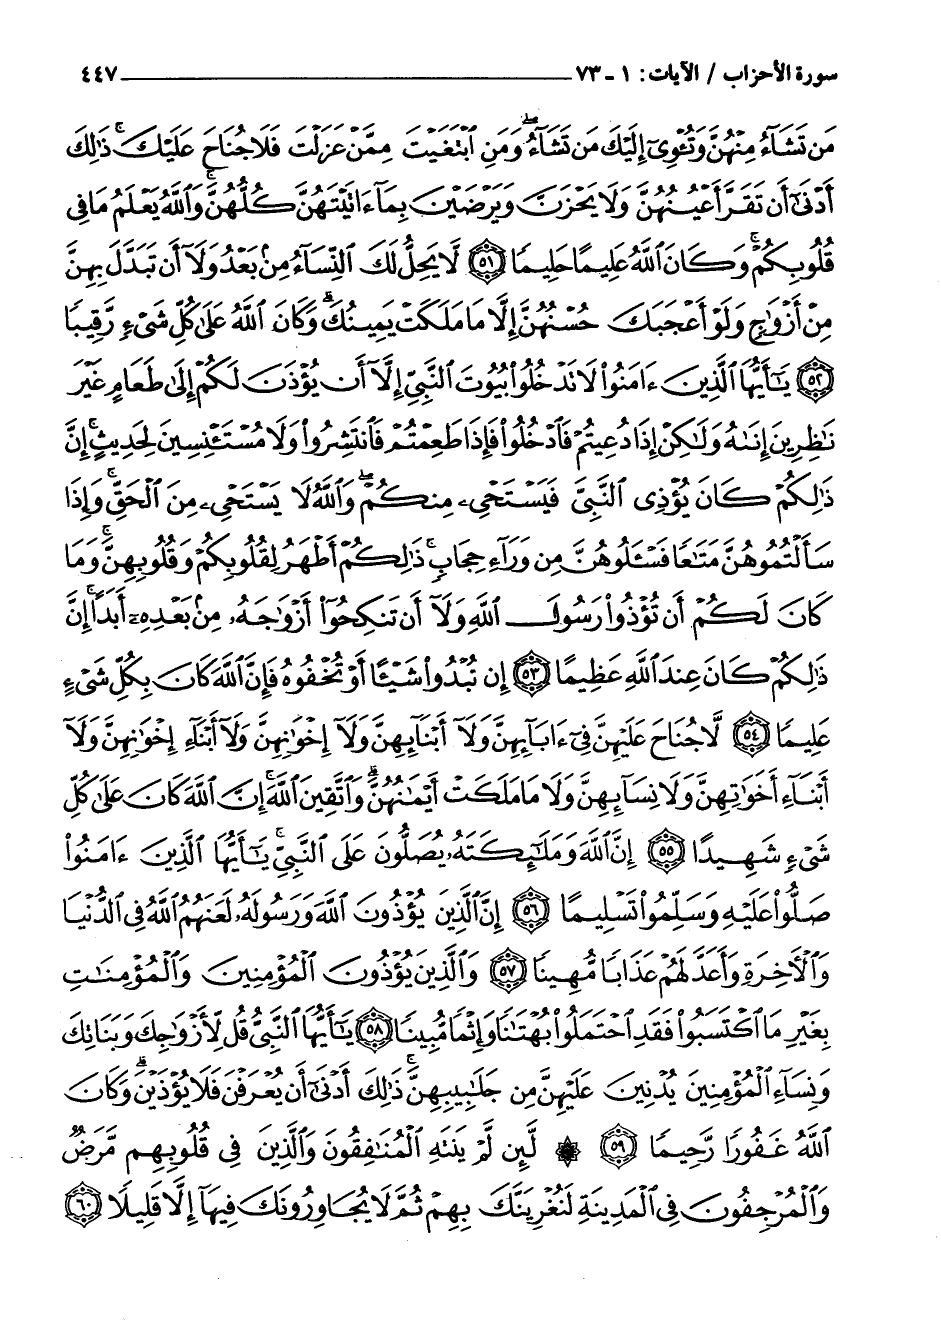 سورة الأحزاب / الآيات: ١ - ٧٣ ٤٤٧
مَن تَشَآءُ مِنْهُنَّ وَتُـْٔوِىٓ إِلَيْكَ مَن تَشَآءُ ۖ وَمَنِ ٱبْتَغَيْتَ مِمَّنْ عَزَلْتَ فَلَا جُنَاحَ عَلَيْكَ ۚ ذَٰلِكَ
أَدْنَىٰٓ أَن تَقَرَّ أَعْيُنُهُنَّ وَلَا يَحْزَنَّ وَيَرْضَيْنَ بِمَآ ءَاتَيْتَهُنَّ كُلُّهُنَّ ۚ وَٱللَّهُ يَعْلَمُ مَا فِى
قُلُوبِكُمْ ۚ وَكَانَ ٱللَّهُ عَلِيمًا حَلِيمًا ۝٥١ لَّا يَحِلُّ لَكَ ٱلنِّسَآءُ مِنۢ بَعْدُ وَلَآ أَن تَبَدَّلَ بِهِنَّ
مِنْ أَزْوَٰجٍ وَلَوْ أَعْجَبَكَ حُسْنُهُنَّ إِلَّا مَا مَلَكَتْ يَمِينُكَ ۗ وَكَانَ ٱللَّهُ عَلَىٰ كُلِّ شَىْءٍ رَّقِيبًا
۝٥٢ يَـٰٓأَيُّهَا ٱلَّذِينَ ءَامَنُوا۟ لَا تَدْخُلُوا۟ بُيُوتَ ٱلنَّبِىِّ إِلَّآ أَن يُؤْذَنَ لَكُمْ إِلَىٰ طَعَامٍ غَيْرَ
نَـٰظِرِينَ إِنَىٰهُ وَلَـٰكِنْ إِذَا دُعِيتُمْ فَٱدْخُلُوا۟ فَإِذَا طَعِمْتُمْ فَٱنتَشِرُوا۟ وَلَا مُسْتَـْٔنِسِينَ لِحَدِيثٍ ۚ إِنَّ
ذَٰلِكُمْ كَانَ يُؤْذِى ٱلنَّبِىَّ فَيَسْتَحْىِۦ مِنكُمْ ۖ وَٱللَّهُ لَا يَسْتَحْىِۦ مِنَ ٱلْحَقِّ ۚ وَإِذَا
سَأَلْتُمُوهُنَّ مَتَـٰعًا فَسْـَٔلُوهُنَّ مِن وَرَآءِ حِجَابٍ ۚ ذَٰلِكُمْ أَطْهَرُ لِقُلُوبِكُمْ وَقُلُوبِهِنَّ ۚ وَمَا
كَانَ لَكُمْ أَن تُؤْذُوا۟ رَسُولَ ٱللَّهِ وَلَآ أَن تَنكِحُوٓا۟ أَزْوَٰجَهُۥ مِنۢ بَعْدِهِۦٓ أَبَدًا ۚ إِنَّ
ذَٰلِكُمْ كَانَ عِندَ ٱللَّهِ عَظِيمًا ۝٥٣ إِن تُبْدُوا۟ شَيْـًٔا أَوْ تُخْفُوهُ فَإِنَّ ٱللَّهَ كَانَ بِكُلِّ شَىْءٍ
عَلِيمًا ۝٥٤ لَّا جُنَاحَ عَلَيْهِنَّ فِىٓ ءَابَآئِهِنَّ وَلَآ أَبْنَآئِهِنَّ وَلَآ إِخْوَٰنِهِنَّ وَلَآ أَبْنَآءِ إِخْوَٰنِهِنَّ وَلَآ
أَبْنَآءِ أَخَوَٰتِهِنَّ وَلَا نِسَآئِهِنَّ وَلَا مَا مَلَكَتْ أَيْمَـٰنُهُنَّ ۗ وَٱتَّقِينَ ٱللَّهَ ۚ إِنَّ ٱللَّهَ كَانَ عَلَىٰ كُلِّ
شَىْءٍ شَهِيدًا ۝٥٥ إِنَّ ٱللَّهَ وَمَلَـٰٓئِكَتَهُۥ يُصَلُّونَ عَلَى ٱلنَّبِىِّ ۚ يَـٰٓأَيُّهَا ٱلَّذِينَ ءَامَنُوا۟
صَلُّوا۟ عَلَيْهِ وَسَلِّمُوا۟ تَسْلِيمًا ۝٥٦ إِنَّ ٱلَّذِينَ يُؤْذُونَ ٱللَّهَ وَرَسُولَهُۥ لَعَنَهُمُ ٱللَّهُ فِى ٱلدُّنْيَا
وَٱلْـَٔاخِرَةِ وَأَعَدَّ لَهُمْ عَذَابًا مُّهِينًا ۝٥٧ وَٱلَّذِينَ يُؤْذُونَ ٱلْمُؤْمِنِينَ وَٱلْمُؤْمِنَـٰتِ
بِغَيْرِ مَا ٱكْتَسَبُوا۟ فَقَدِ ٱحْتَمَلُوا۟ بُهْتَـٰنًا وَإِثْمًا مُّبِينًا ۝٥٨ يَـٰٓأَيُّهَا ٱلنَّبِىُّ قُل لِّأَزْوَٰجِكَ وَبَنَاتِكَ
وَنِسَآءِ ٱلْمُؤْمِنِينَ يُدْنِينَ عَلَيْهِنَّ مِن جَلَـٰبِيبِهِنَّ ۚ ذَٰلِكَ أَدْنَىٰٓ أَن يُعْرَفْنَ فَلَا يُؤْذَيْنَ ۗ وَكَانَ
ٱللَّهُ غَفُورًا رَّحِيمًا ۝٥٩ ۞ لَّئِن لَّمْ يَنتَهِ ٱلْمُنَـٰفِقُونَ وَٱلَّذِينَ فِى قُلُوبِهِم مَّرَضٌ
وَٱلْمُرْجِفُونَ فِى ٱلْمَدِينَةِ لَنُغْرِيَنَّكَ بِهِمْ ثُمَّ لَا يُجَاوِرُونَكَ فِيهَآ إِلَّا قَلِيلًا ۝٦٠